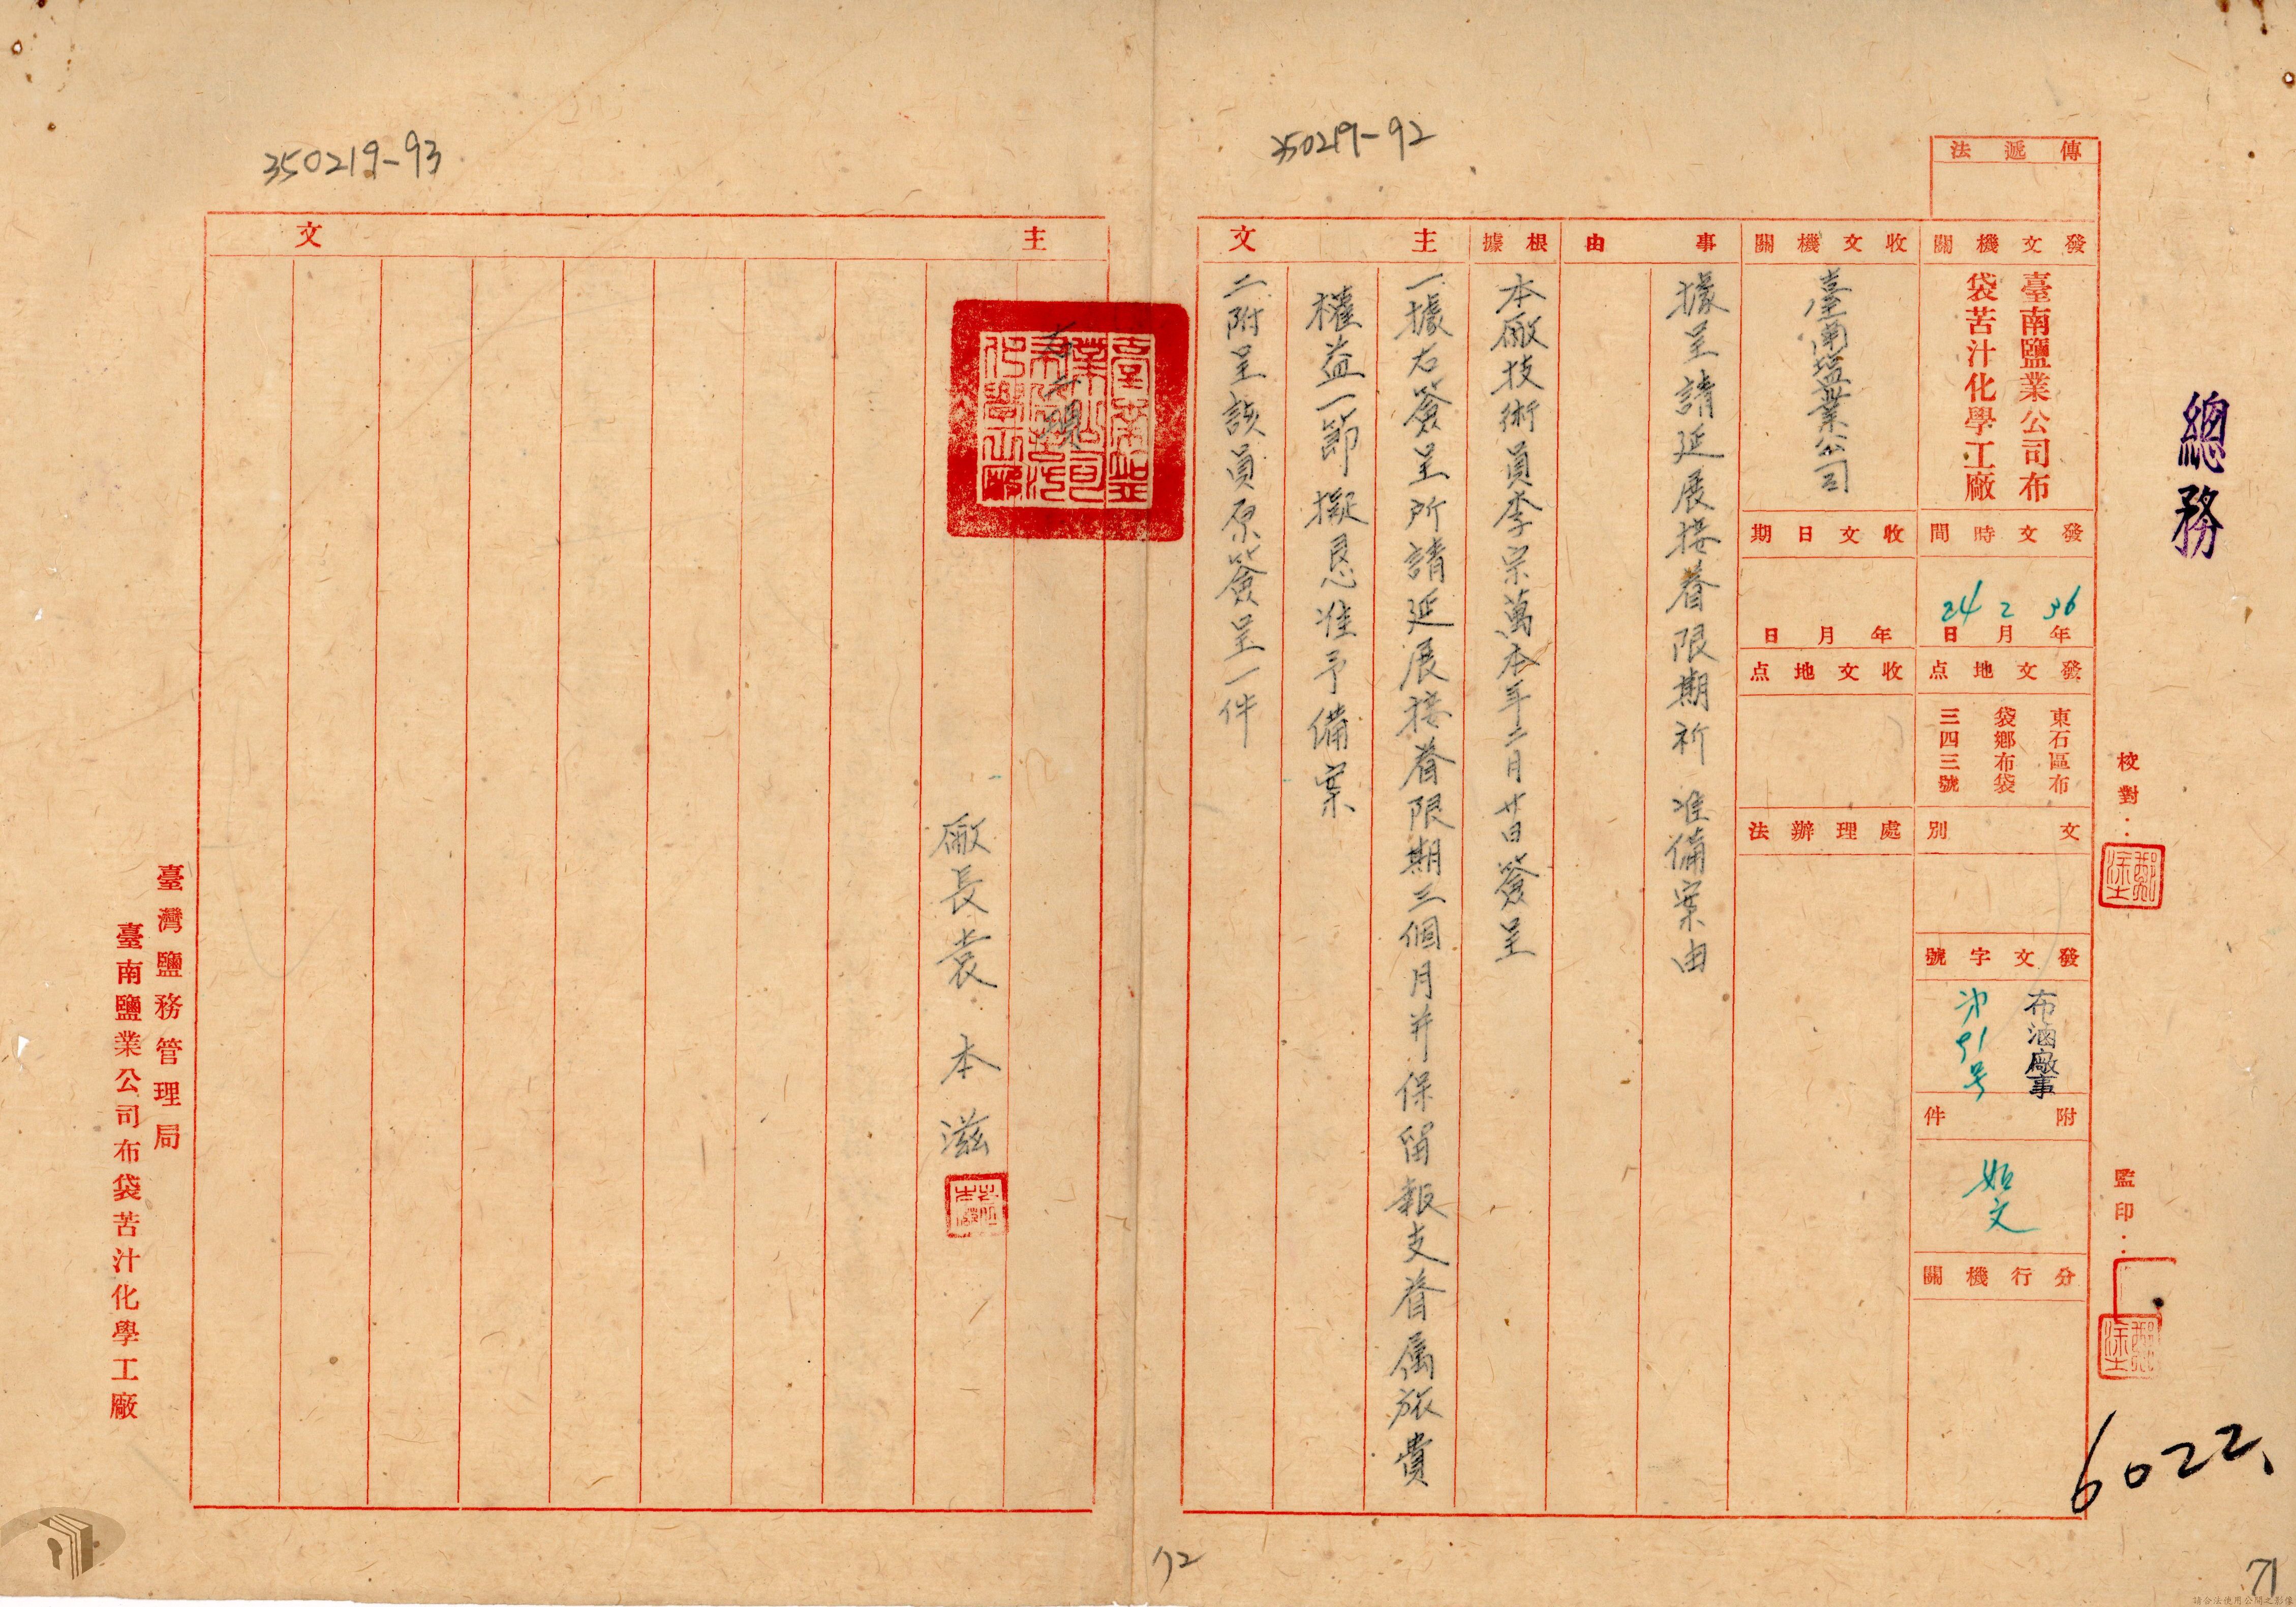 350219-92
350219-93
總務
傳遞法
發文機關
臺南鹽業公司布
袋苦汁化學工廠
發文時間
36年2月24日
發文地点
東石區布
袋鄉布袋
三四三號
文別
發文字號
布滷廠事
第91号
附件
如文
分行機關
校對：
監印：
6022、
收文機關
臺南塩業公司
收文日期
年月日
收文地点
處理辦法
事由
據呈請延展接眷限期祈准備案由
根據
本廠技術員李宗萬本年二月廿日簽呈
主文
一據右簽呈所請延展接眷限期三個月并保留報支眷属旅費
權益一節擬恳准予備案
二附呈該員原簽呈一件
主文
廠長袁本滋
臺灣鹽務管理局
臺南鹽業公司布袋苦汁化學工廠
72
71
請合法使用公開之影像